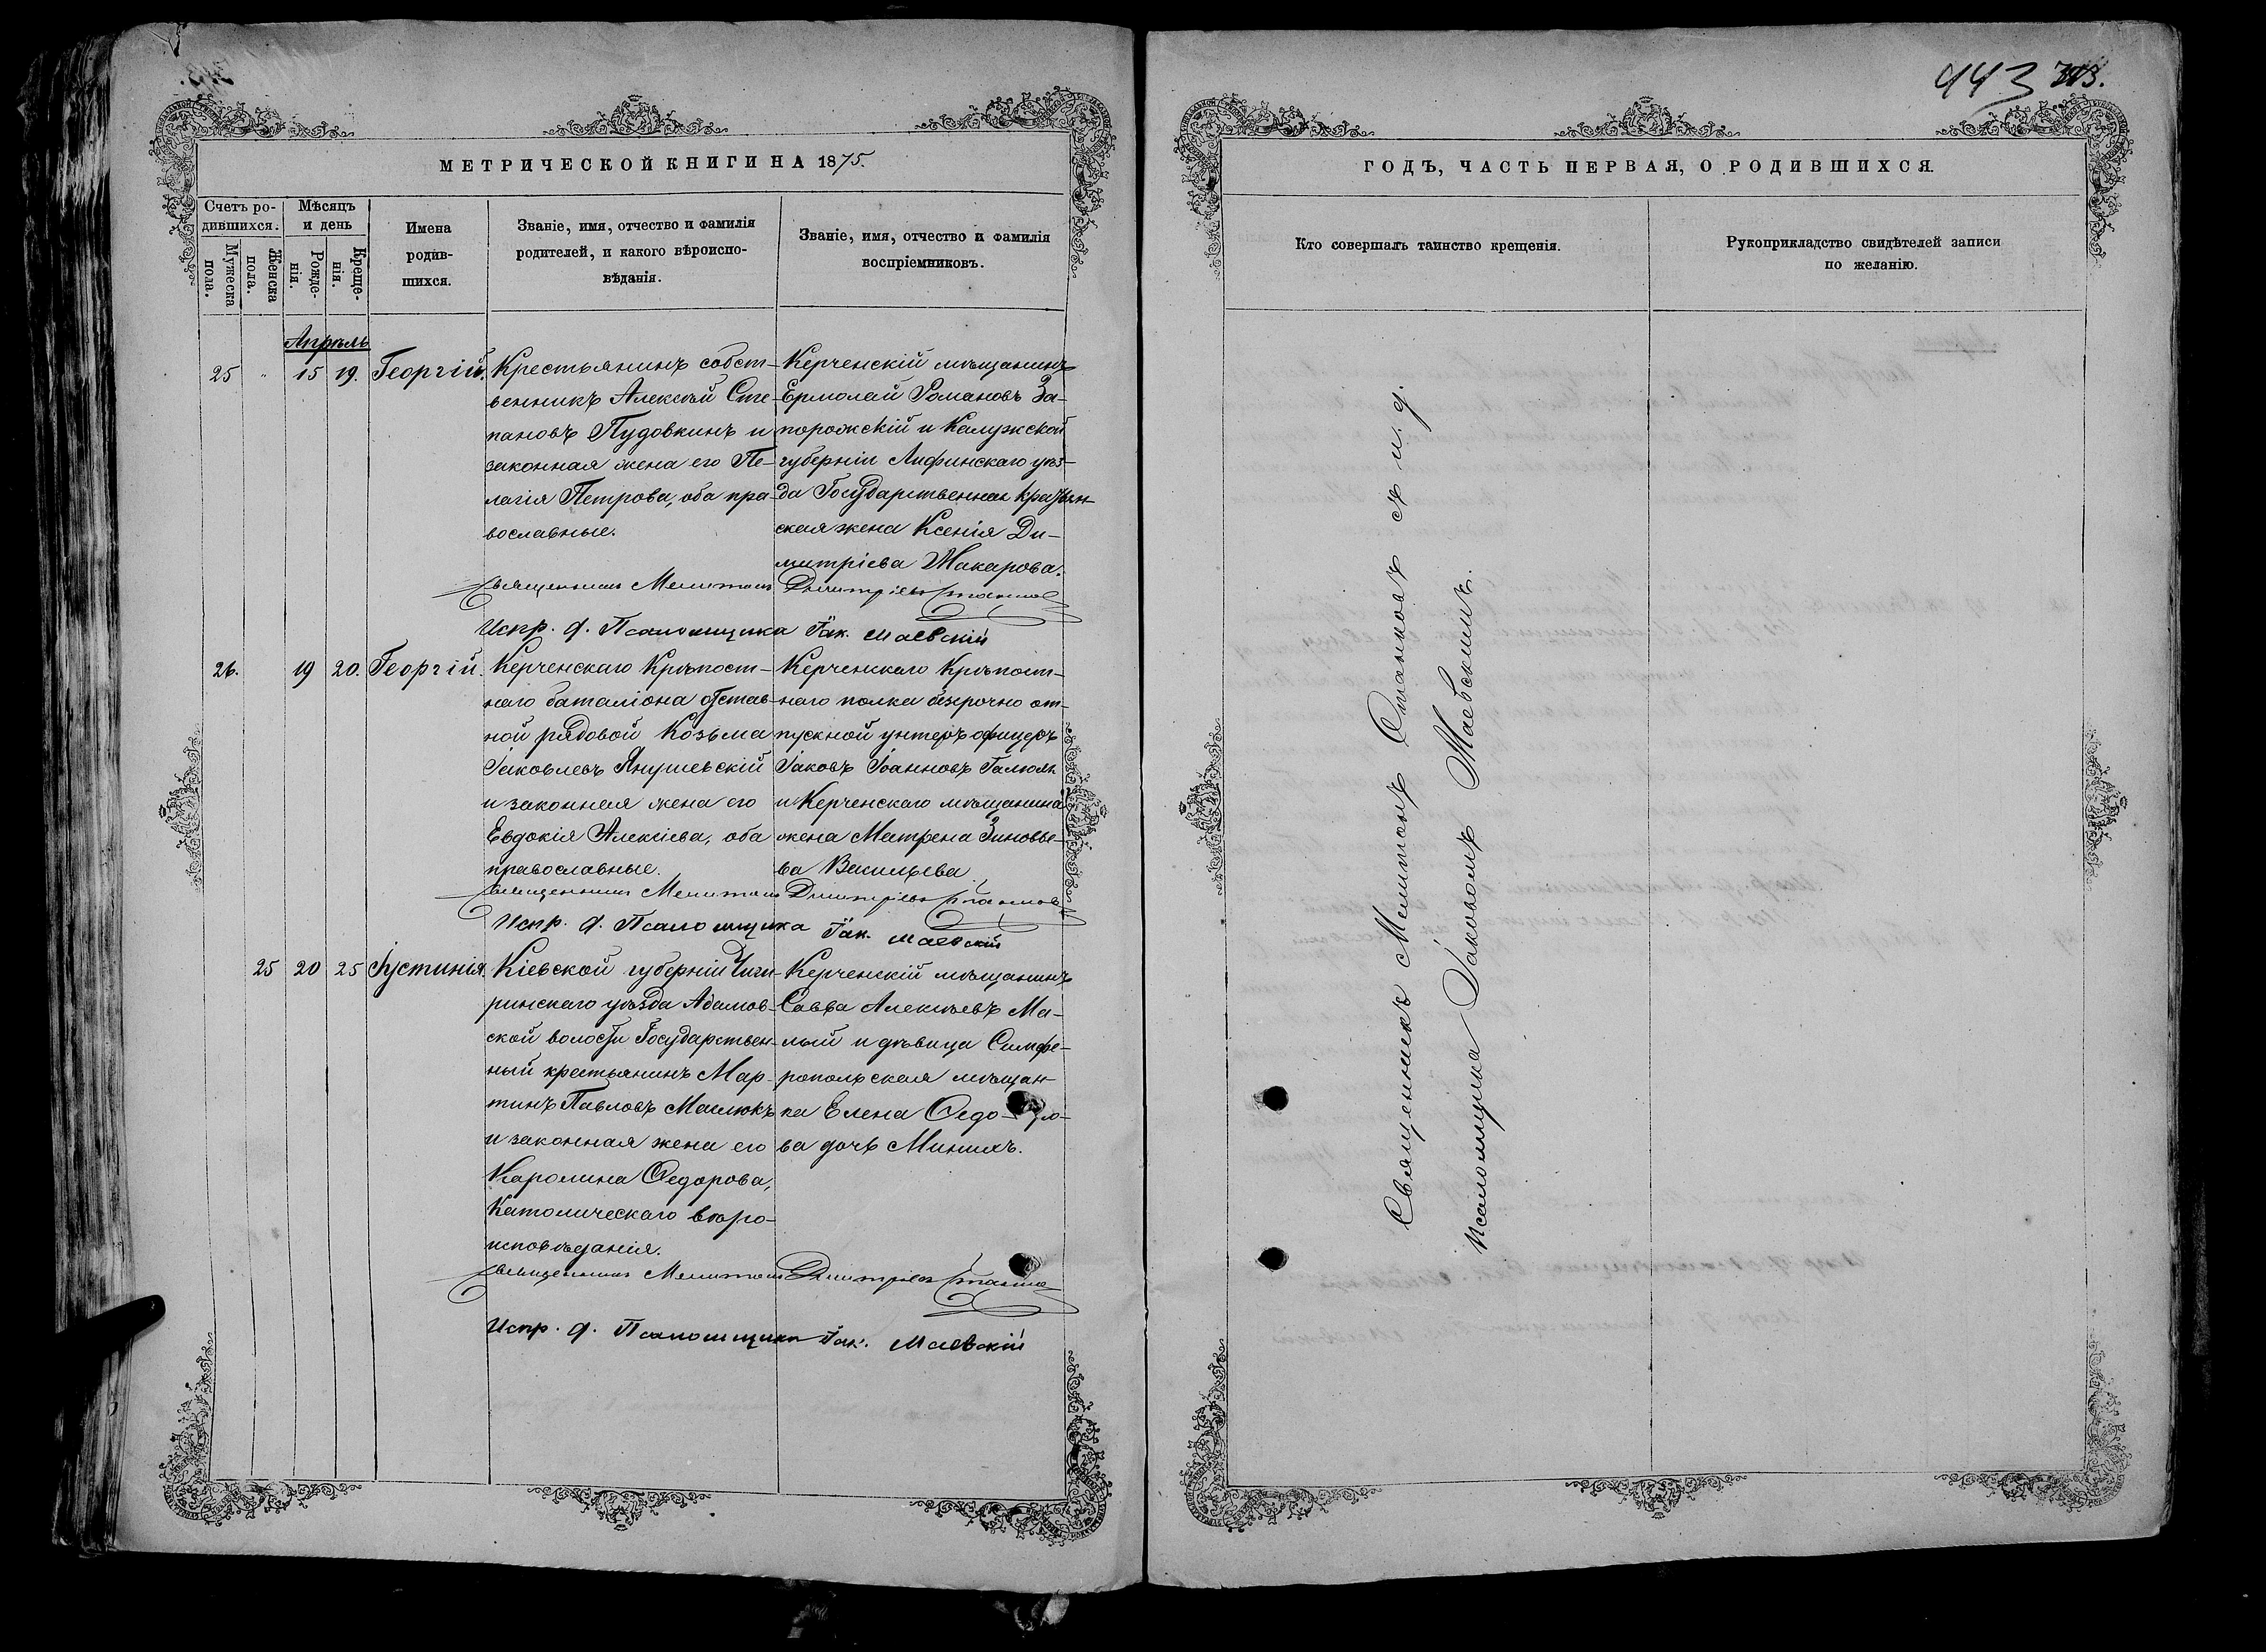 МЕТРИЧЕСКОЙ КНИГИ НА 1875.
Счетъ ро-
дившихся.
Мужеска
пола.
Женска
пола.
Мѣсяцъ
и день
Рожде-
нія.
Креще-
нія.
Имена
родив-
шихся.
Званіе, имя, отчество и фамилія
родителей, и какого вѣроиспо-
вѣданія.
Званіе, имя, отчество и фамилія
воспріемниковъ.
Апрѣль
25 " 15 19. Георгій.
Крестьянинъ собст-
венникъ Алексѣй Сте-
пановъ Пудовкинъ и
законная жена его Пе-
лагія Петрова, оба пра-
вославные.
Керченскій мѣщанинъ
Ермолай Романовъ За-
порожскій и Калужской
губерніи Лифинскаго уѣз-
да Государственная
ская жена Ксенія Ди-
митріева Макарова.
Священникъ Мелитонъ Димитріевъ Станковъ
Испр. д. Псаломщика Іак. Маевскій
26. 19 20. Георгій.
Керченскаго Крѣпост-
наго баталіона отстав-
ной рядовой Козьма
Іаковлевъ Янушевскій
и законная жена его
Евдокія Алексіева, оба
православные.
Керченскаго Крѣпост-
наго полка безсрочно от-
пускной унтеръ офицеръ
Іаковъ Іоанновъ
и Керченскаго мѣщанина
жена Матрена Зиновье-
ва Васильева
Священникъ Мелитонъ Димитріевъ Станковъ
Испр. д. Псаломщика Іак. Маевскій
25 20 25 Іустинія.
Кіевской губерніи Чиги-
ринскаго уѣзда Адамов-
ской волости Государствен-
ный крестьянинъ Мар-
тинъ Павловъ Маслюкъ
и законная жена его
Каролина Ѳедорова,
Католическаго вѣро-
исповѣданія.
Керченскій мѣщанинъ
Савва Алексѣевъ Ма-
лый и дѣвица Симфе-
ропольская мѣщан-
ка Елена Ѳедо-
ва дочь Минихъ.
Священникъ Мелитонъ Димитріевъ Станковъ
Испр. д. Псаломщика Іак. Маевскій
443 313.
ГОДЪ, ЧАСТЬ ПЕРВАЯ, О РОДИВШИХСЯ.
Кто совершалъ таинство крещенія.
Рукоприкладство свидѣтелей записи
по желанію.
Священникъ Мелитонъ Станковъ съ и. д.
псаломщика Іаковомъ Маевскимъ.